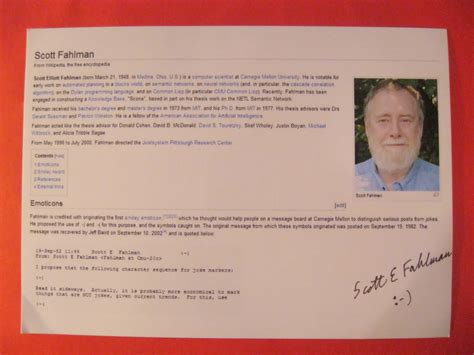 Scott Fahlman
From Wikipedia, the free encyclopedia
Scott Elliott Fahlman (born March 21, 1948, in Medina, Ohio, U.S.) is a computer scientist at Carnegie Mellon University. He is notable for
early work on automated planning in a blocks world, on semantic networks, on neural networks (and, in particular, the cascade correlation
algorithm), on the Dylan programming language, and on Common Lisp (in particular CMU Common Lisp). Recently, Fahlman has been
engaged in constructing a Knowledge Base, "Scone", based in part on his thesis work on the NETL Semantic Network.
Fahlman received his bachelors degree and master's degree in 1973 from MIT, and his Ph.D. from MIT in 1977. His thesis advisors were Drs
Gerald Sussman and Patrick Winston. He is a fellow of the American Association for Artificial Intelligence.
Fahlman acted like the thesis advisor for Donald Cohen, David B. McDonald, David S. Touretzky, Skef Wholey, Justin Boyan, Michael
Witbrock, and Alicia Tribble Sagae
From May 1996 to July 2000, Fahlman directed the Justsystem Pittsburgh Research Center.
Contents [hide]
1 Emoticons
2 Awards
3 References
4 External links
Scott Fahlman
Emoticons
[edit]
Fahlman is credited with originating the first smiley emoticon, which he thought would help people on a message board at Carnegie Mellon to distinguish serious posts from jokes.
He proposed the use of :-) and :-( for this purpose, and the symbols caught on. The original message from which these symbols originated was posted on September 19, 1982. The
message was recovered by Jeff Baird on September 10, 2002 and is quoted below:
19-Sep-82 11:44 Scott E Fahlman :-)
From: Scott E Fahlman <Fahlman at Cmu-20c>
I propose that the following character sequence for joke markers:
:-)
Read it sideways. Actually, it is probably more economical to mark
things that are NOT jokes, given current trends. For this, use
Scott E Fahlman
:-)